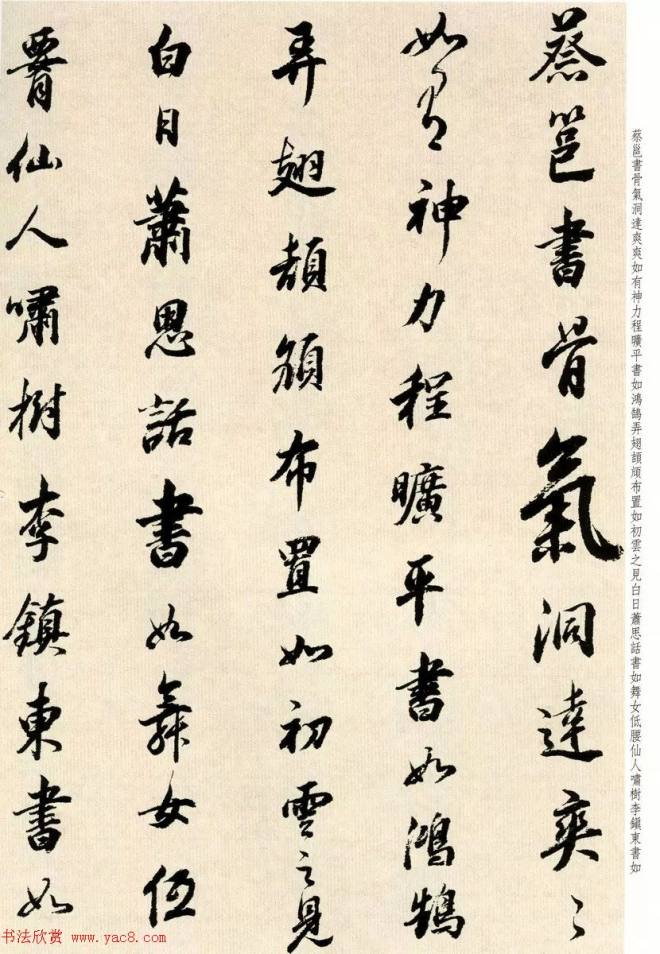 蔡邕書骨氣洞達爽〻
如有神力程曠平書如鴻鵠
弄翅頡頏布置如初雲之見
白日蕭思話書如舞女低
腰仙人嘯樹李鎮東書如
蔡邕書骨氣洞達爽爽如有神力程曠平書如鴻鵠弄翅頡頏布置如初雲之見白日蕭思話書如舞女低腰仙人嘯樹李鎮東書如
书法欣赏 www.yac8.com